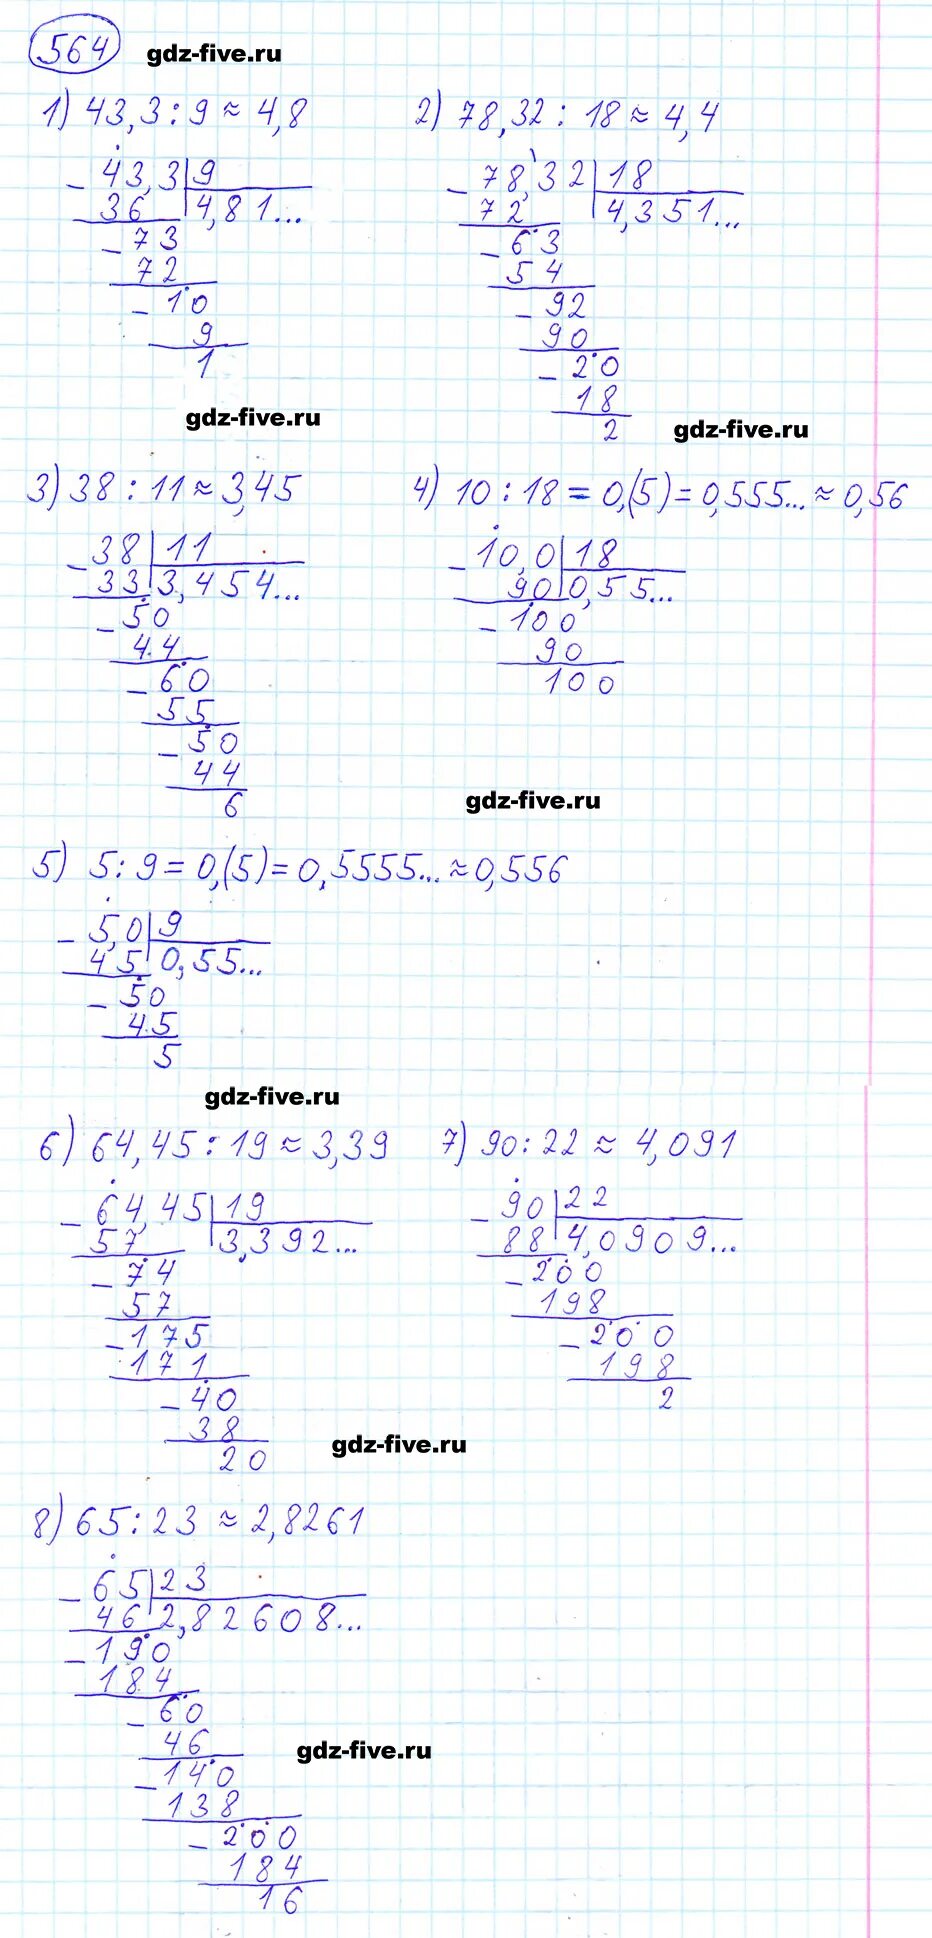 564 gdz-five.ru
1) 43,3 : 9 ≈ 4,8
- 43,3 | 9
36 | 4,81...
- 73
72
- 10
9
1
gdz-five.ru
2) 78,32 : 18 ≈ 4,4
- 78,32 | 18
72 | 4,351...
- 63
54
- 92
90
- 20
18
2
gdz-five.ru
3) 38 : 11 ≈ 3,45
- 38 | 11
33 | 3,454...
- 50
44
- 60
55
- 50
44
6
4) 10 : 18 = 0,(5) = 0,555... ≈ 0,56
- 10,0 | 18
90 | 0,55...
- 100
90
100
gdz-five.ru
5) 5 : 9 = 0,(5) = 0,5555... ≈ 0,556
- 5,0 | 9
45 | 0,55...
- 50
45
5
gdz-five.ru
6) 64,45 : 19 ≈ 3,39
- 64,45 | 19
57 | 3,392...
- 74
57
- 175
171
- 40
38
20
gdz-five.ru
7) 90 : 22 ≈ 4,091
- 90 | 22
88 | 4,0909...
- 200
198
- 200
198
2
8) 65 : 23 ≈ 2,8261
- 65 | 23
46 | 2,82608...
- 190
184
- 60
46
- 140
138
- 200
184
16
gdz-five.ru